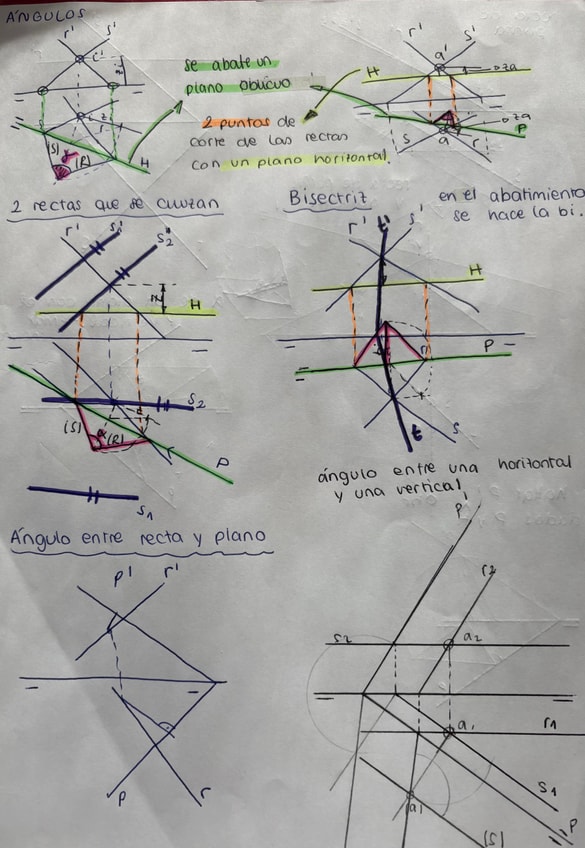 ÁNGULOS
r' s'
c'
r
(S) (R) H
se abate un
plano oblicuo
2 puntos de
corte de las rectas
con un plano horizontal.
r' s'
a'
H
oza
oza
P
s a r
2 rectas que se cruzan
r' s1' s2'
Z
H
s2
(S) α (R)
P
s1
Bisectriz
en el abatimiento
se hace la bi.
r' t' s'
H
P
r
s
t
ángulo entre una horizontal
y una vertical
Ángulo entre recta y plano
p' r'
p r
p'
r2
s2 a2
a1 r1
s1
P
a1
(S)